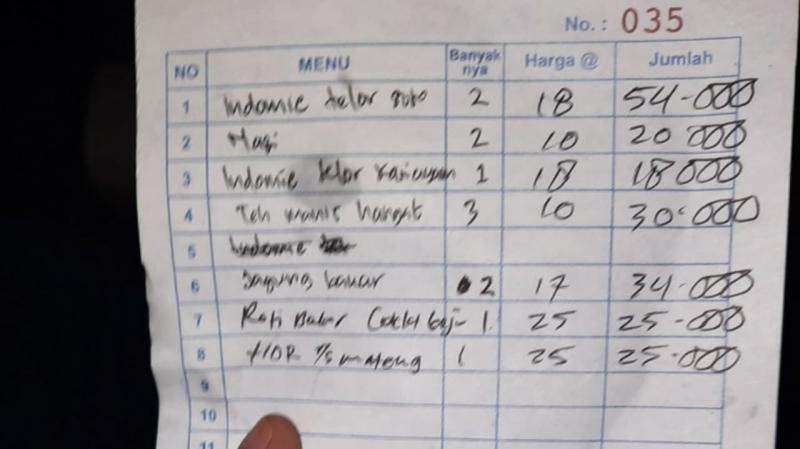 No. : 035
NO MENU Banyak nya Harga @ Jumlah
1 Indomie telor soto 2 18 54-000
2 Nasi 2 10 20 000
3 Indomie telor 1 18 18 000
4 Teh manis hangat 3 10 30.000
5 Indomie
6 Jagung bakar 2 17 34-000
7 Roti Bakar Coklat keju 1 25 25-000
8 1/2 mateng 1 25 25-000
9
10
11